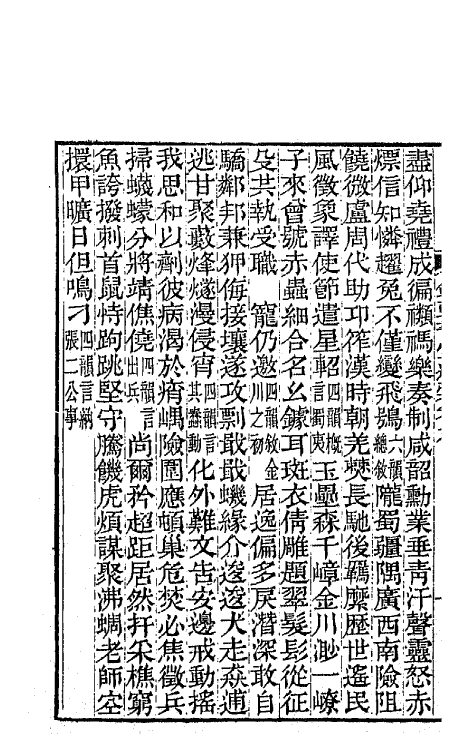 盡仰堯禮成徧禷禡樂奏制咸韶勳業垂青汗聲靈怒赤
熛信知憐趯兔不僅變飛鴞六韻總敘隴蜀疆隅廣西南險阻
饒微盧周代助邛筰漢時朝羌僰長馳後羈縻歷世遙民
風徵象譯使節遣星軺四韻概言蜀夷玉壘森千嶂金川渺一嶚
子來曾號赤蟲細合名幺鐻耳斑衣倩雕題翠髮髟從征
殳共執受職　寵仍邀四韻敘金川之初居逸偏多戾潛深敢自
驕鄰邦兼狎侮接壤遂攻剽戢戢蟣緣介逡逡犬走猋逋
逃甘聚藪烽燧漫侵宵四韻言其蠢動化外難文告安邊戒動搖
我思和以劑彼病渴於痟嵎險圍應頓巢危焚必焦徵兵
掃蠛蠓分將靖僬僥四韻言出兵尚爾矜超距居然扞采樵窮
魚誇撥刺首鼠恃跔跳堅守騰饑虎煩謀聚沸蜩老師空
擐甲曠日但鳴刁四韻言納張二公事